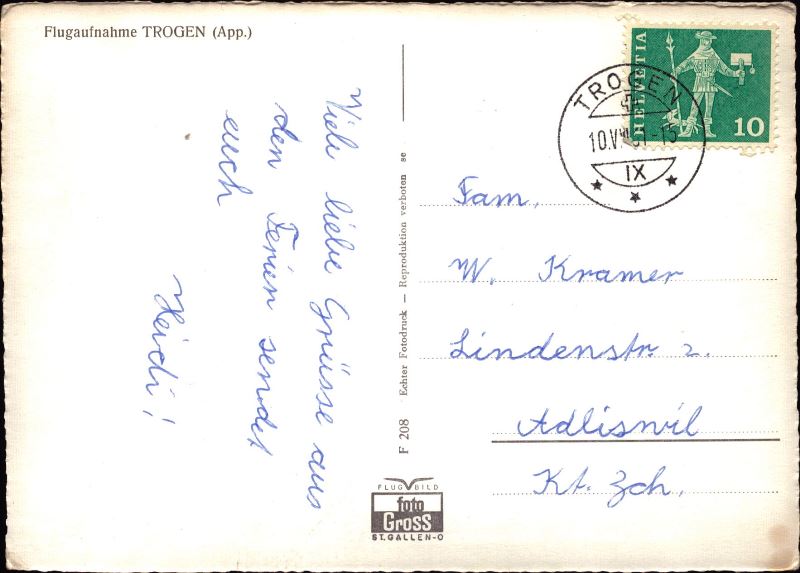 Flugaufnahme TROGEN (App.)
Viele liebe Grüsse aus
den Ferien sendet
euch
Heidi!
F 208 Echter Fotodruck — Reproduktion verboten se
FLUG BILD
foto
Gross
ST. GALLEN-O
HELVETIA
10
TROGEN
IX
Fam.
W. Kramer
Lindenstr. 2.
Adliswil
Kt. Zch.